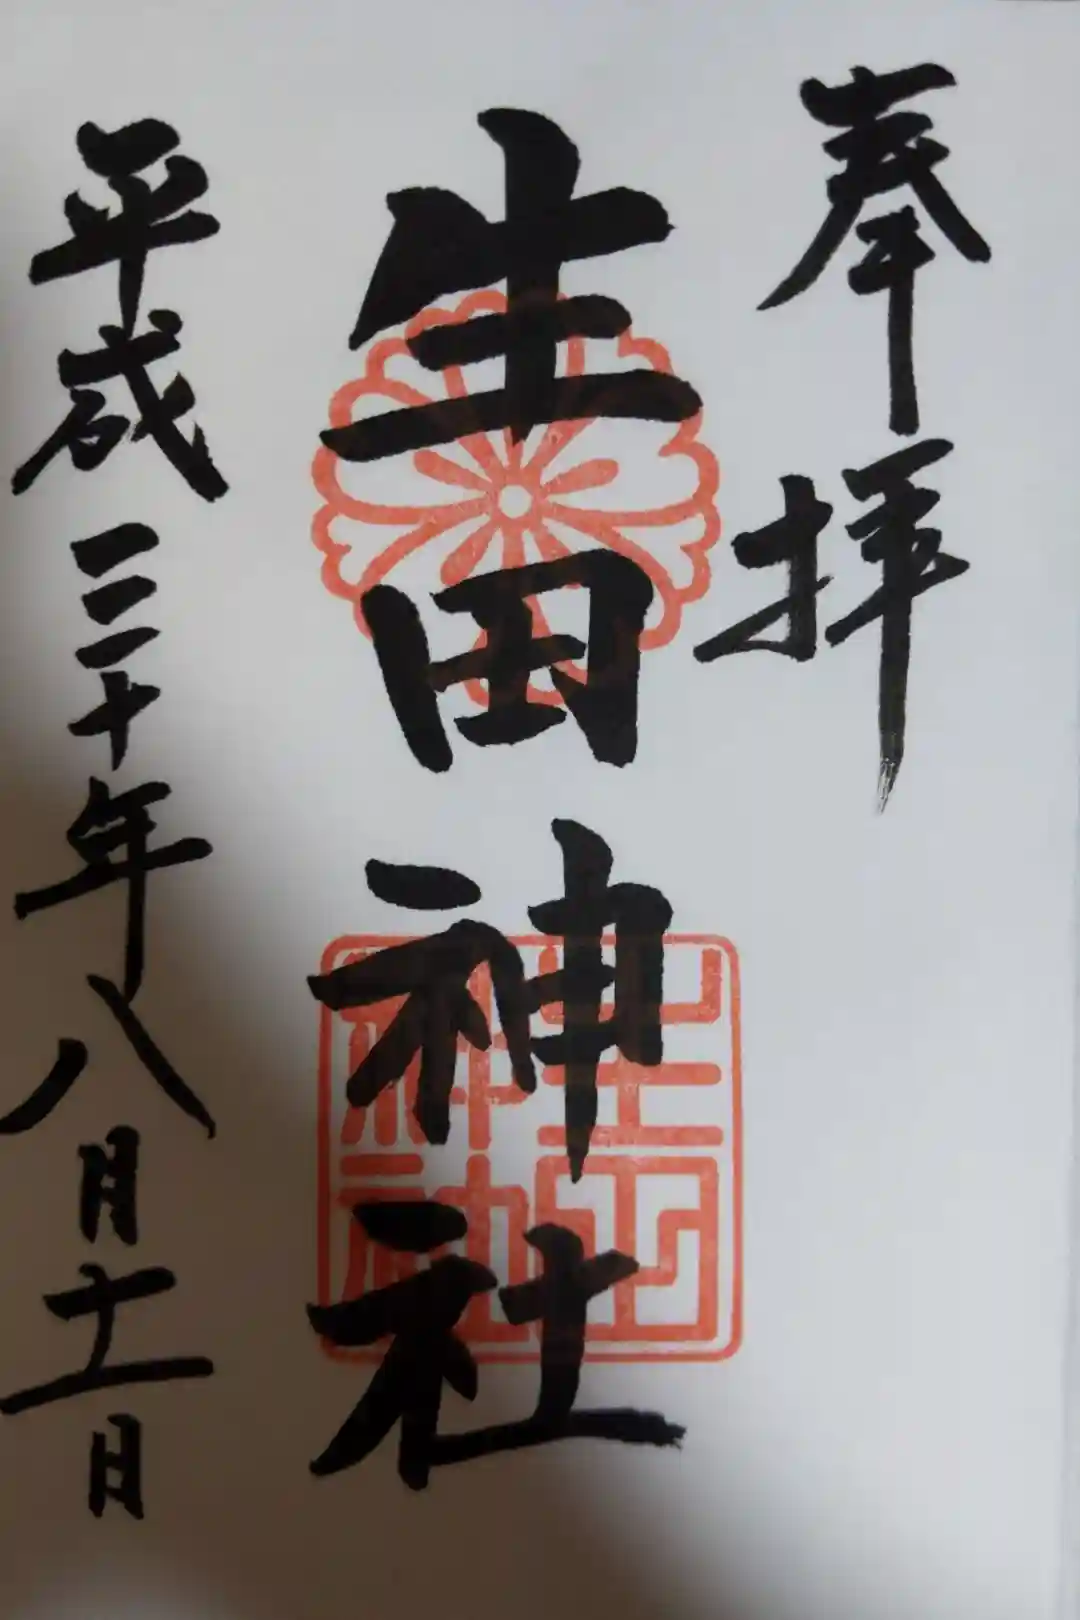 奉拝
生田神社
生田神社
平成三十年八月十一日